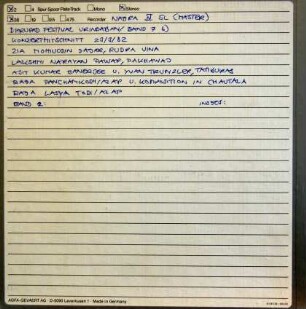 Spur-Spoor-Piste-Track Mono Stereo
Recorder NAGRA IV SL (MASTER)
DHRUPAD FESTIVAL VRINDABAN/ BAND 7
KONZERTMITSCHNITT
ZIA MOHIUDDIN DAGAR, RUDRA VINA
LAKSHMI NARAYAN PAWAR, PAKHAWAJ
ASIT KUMAR BANERJEE U. YVAN TRUNZLER, TAMBURAS
RAGA PANCHAMKOSH/ALAP U. KOMPOSITION IN CHAUTALA
RAGA LASYA TODI/ALAP
BAND 2: INSGES:
AGFA-GEVAERT AG D-5090 Leverkusen 1 Made in Germany